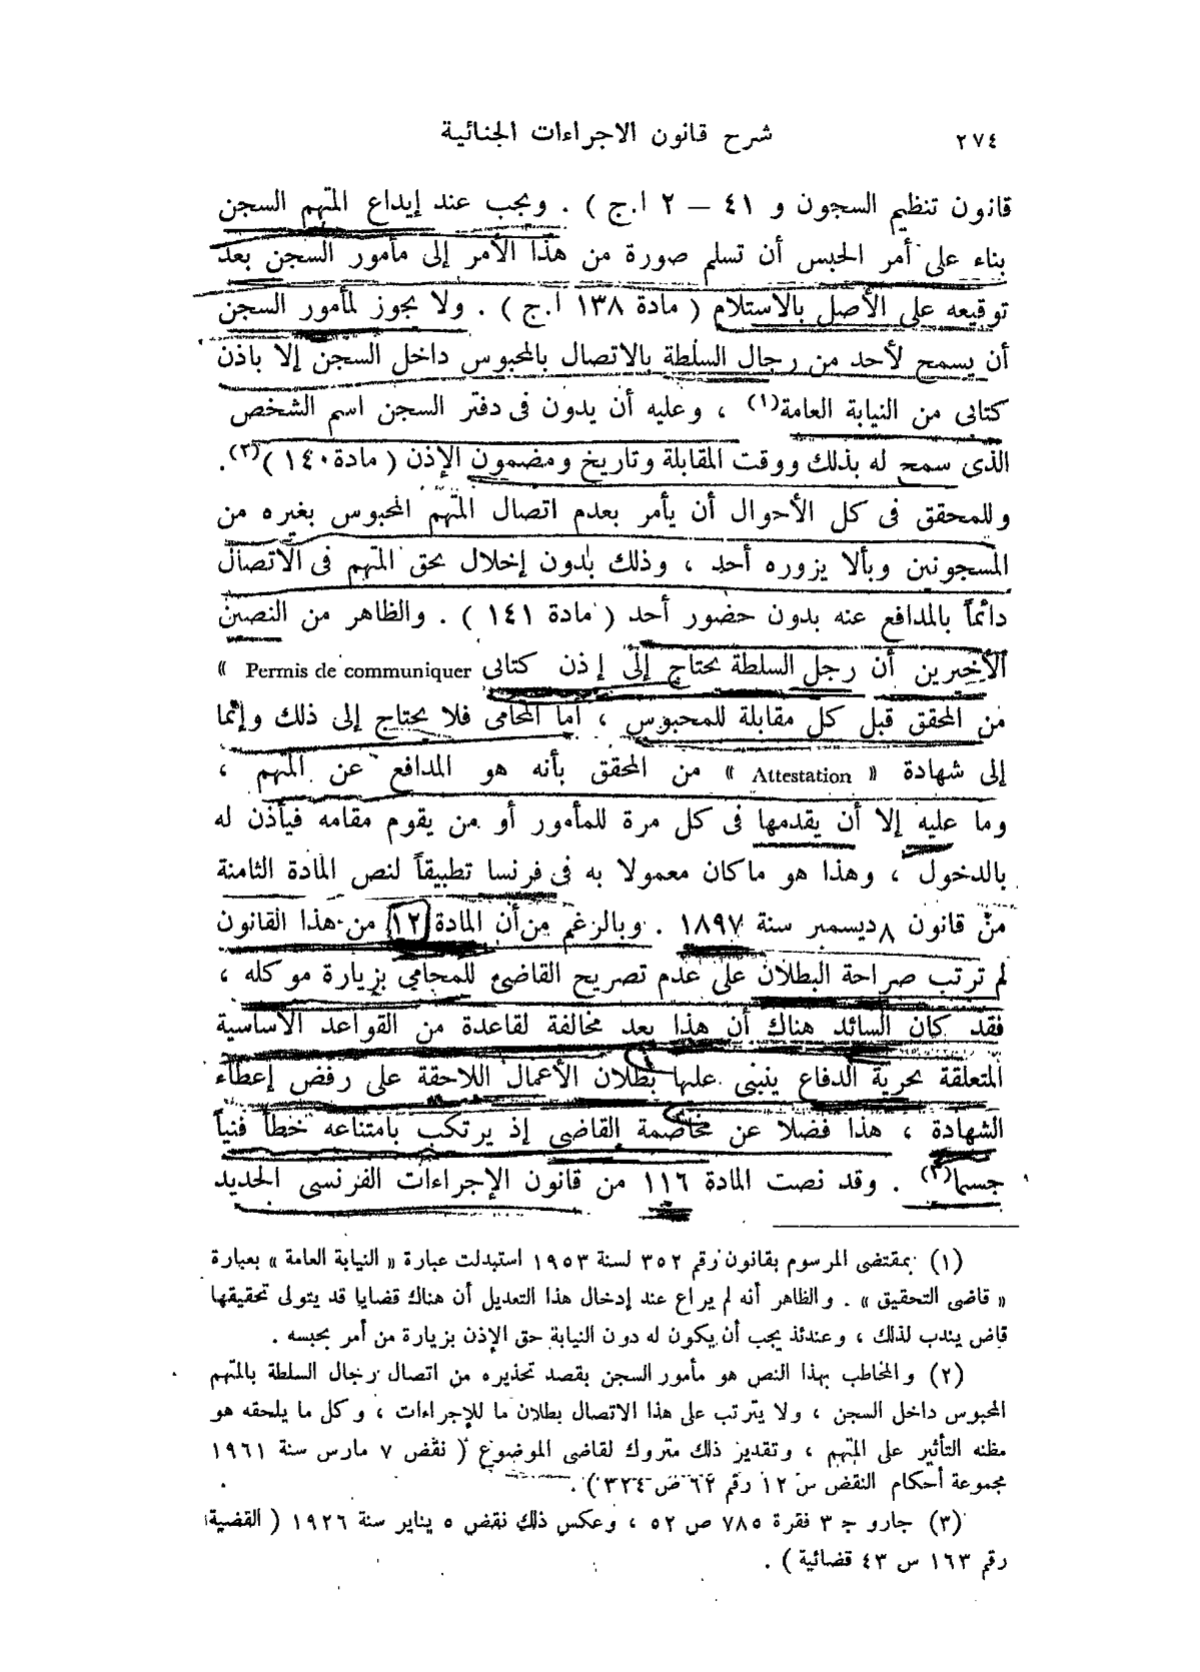 ٢٧٤
شرح قانون الاجراءات الجنائية
قانون تنظيم السجون و ٤١ – ٢ ا.ج ) . ويجب عند إيداع المتهم السجن
بناء على أمر الحبس أن تسلم صورة من هذا الأمر إلى مأمور السجن بعد
توقيعه على الأصل بالاستلام ( مادة ١٣٨ ا.ج ) . ولا يجوز لمأمور السجن
أن يسمح لأحد من رجال السلطة بالاتصال بالمحبوس داخل السجن إلا باذن
كتابى من النيابة العامة(١) ، وعليه أن يدون فى دفتر السجن اسم الشخص
الذى سمح له بذلك ووقت المقابلة وتاريخ ومضمون الإذن ( مادة ١٤٠ )(٢).
وللمحقق فى كل الأحوال أن يأمر بعدم اتصال المتهم المحبوس بغيره من
المسجونين وبألا يزوره أحد ، وذلك بدون إخلال بحق المتهم فى الاتصال
دائماً بالمدافع عنه بدون حضور أحد ( مادة ١٤١ ) . والظاهر من النصين
الأخيرين أن رجل السلطة يحتاج إلى إذن كتابى Permis de communiquer »
من المحقق قبل كل مقابلة للمحبوس ، أما المحامى فلا يحتاج إلى ذلك وإنما
إلى شهادة « Attestation » من المحقق بأنه هو المدافع عن المتهم ،
وما عليه إلا أن يقدمها فى كل مرة للمأمور أو من يقوم مقامه فيأذن له
بالدخول ، وهذا هو ماكان معمولا به فى فرنسا تطبيقاً لنص المادة الثامنة
من قانون ٨ ديسمبر سنة ١٨٩٧ . وبالرغم من أن المادة ١٢ من هذا القانون
لم ترتب صراحة البطلان على عدم تصريح القاضى للمحامى بزيارة موكله ،
فقد كان السائد هناك أن هذا يعد مخالفة لقاعدة من القواعد الأساسية
المتعلقة بحرية الدفاع ينبنى عليها بطلان الأعمال اللاحقة على رفض إعطاء
الشهادة ، هذا فضلا عن مخاصمة القاضى إذ يرتكب بامتناعه خطأ فنياً
جسيما(٣) . وقد نصت المادة ١١٦ من قانون الإجراءات الفرنسى الجديد
(١) بمقتضى المرسوم بقانون رقم ٣٥٢ لسنة ١٩٥٣ استبدلت عبارة « النيابة العامة » بعبارة
« قاضى التحقيق » . والظاهر أنه لم يراع عند إدخال هذا التعديل أن هناك قضايا قد يتولى تحقيقها
قاض يندب لذلك ، وعندئذ يجب أن يكون له دون النيابة حق الإذن بزيارة من أمر بحبسه .
(٢) والمخاطب بهذا النص هو مأمور السجن بقصد تحذيره من اتصال رجال السلطة بالمتهم
المحبوس داخل السجن ، ولا يترتب على هذا الاتصال بطلان ما للإجراءات ، وكل ما يلحقه هو
مظنه التأثير على المتهم ، وتقدير ذلك متروك لقاضى الموضوع ( نقض ٧ مارس سنة ١٩٦١
مجموعة أحكام النقض س ١٢ رقم ٦٢ ص ٣٢٤ ) .
(٣) جارو ج ٣ فقرة ٧٨٥ ص ٥٢ ، وعكس ذلك نقض ٥ يناير سنة ١٩٢٦ ( القضية
رقم ١٦٣ س ٤٣ قضائية ) .